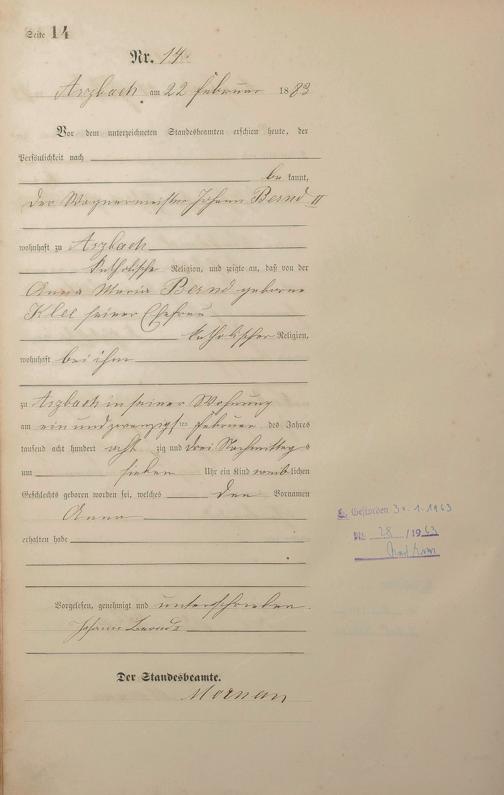 Seite 14
Nr. 14.
Arzbach am 22 Februar 1883
Vor dem unterzeichneten Standesbeamten erschien heute, der
Persönlichkeit nach
be kannt,
der Wagnermeister Johann Bernd II
wohnhaft zu Arzbach
katholischer Religion, und zeigte an, daß von der
Anna Maria Bernd geborne
Klee seiner Ehefrau
katholischer Religion,
wohnhaft bei ihm
zu Arzbach in seiner Wohnung
am ein und zwanzigsten Februar des Jahres
tausend acht hundert acht zig und drei Nachmittags
um sieben Uhr ein Kind weiblichen
Geschlechts geboren worden sei, welches den Vornamen
Anna
erhalten habe
Vorgelesen, genehmigt und unterschrieben.
Johann Bernd
Der Standesbeamte.
Gestorben 30.1.1963
Nr. 28/1963